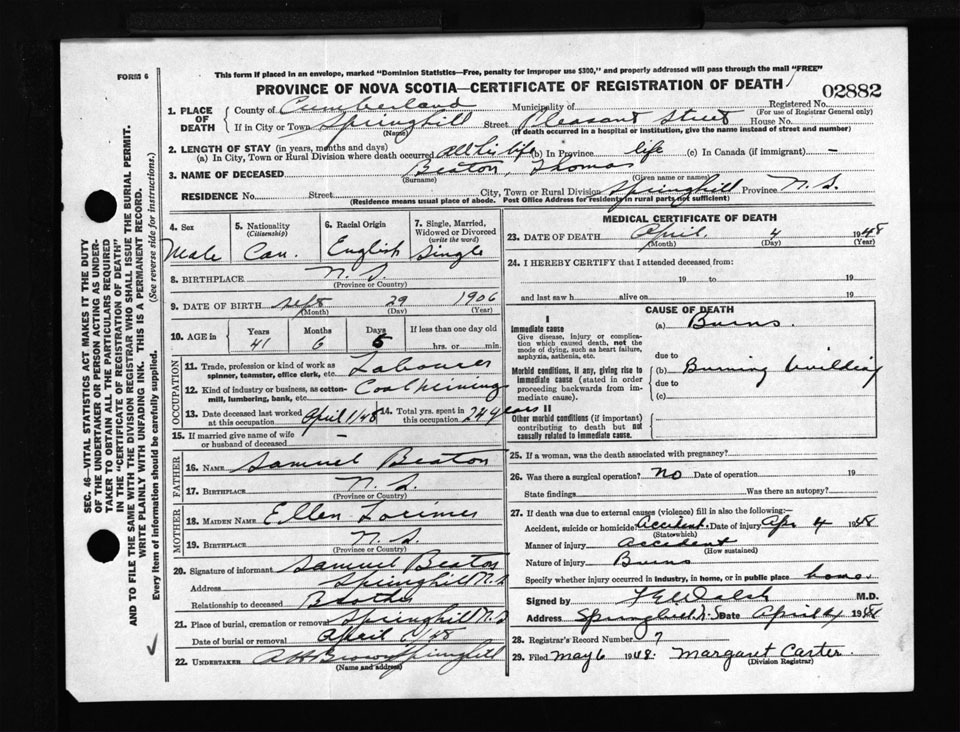 FORM 6
This form if placed in an envelope, marked "Dominion Statistics—Free, penalty for improper use $300," and properly addressed will pass through the mail "FREE"
PROVINCE OF NOVA SCOTIA—CERTIFICATE OF REGISTRATION OF DEATH
02882
1. PLACE OF DEATH County of Cumberland Municipality of Registered No.
(For use of Registrar General only)
If in City or Town Springhill Street Pleasant Street House No.
(Name) (If death occurred in a hospital or institution, give the name instead of street and number)
2. LENGTH OF STAY (in years, months and days)
(a) In City, Town or Rural Division where death occurred all his life (b) In Province life (c) In Canada (if immigrant) -
3. NAME OF DECEASED Beaton, Thomas
(Surname) (Given name or names)
RESIDENCE No. Street City, Town or Rural Division Springhill Province N.S.
(Residence means usual place of abode. Post Office Address for residents in rural parts not sufficient)
4. Sex 5. Nationality (Citizenship) 6. Racial Origin 7. Single, Married, Widowed or Divorced (write the word)
Male Can. English Single
8. BIRTHPLACE N.S.
(Province or Country)
9. DATE OF BIRTH Sept 29 1906
(Month) (Day) (Year)
10. AGE in Years Months Days If less than one day old
41 6 5 hrs. or min.
OCCUPATION
11. Trade, profession or kind of work as spinner, teamster, office clerk, etc. Labourer
12. Kind of industry or business, as cotton-mill, lumbering, bank, etc. Coal mining
13. Date deceased last worked at this occupation April 1/48 14. Total yrs. spent in this occupation 24 years
15. If married give name of wife or husband of deceased -
FATHER
16. NAME Samuel Beaton
17. BIRTHPLACE N.S.
(Province or Country)
MOTHER
18. MAIDEN NAME Ellen Lorimer
19. BIRTHPLACE N.S.
(Province or Country)
20. Signature of informant Samuel Beaton
Address Springhill N.S
Relationship to deceased Brother
21. Place of burial, cremation or removal Springhill N.S
Date of burial or removal April /48
22. UNDERTAKER A H Brown Springhill
(Name and address)
MEDICAL CERTIFICATE OF DEATH
23. DATE OF DEATH April. 4 1948
(Month) (Day) (Year)
24. I HEREBY CERTIFY that I attended deceased from:
19 to 19
and last saw h alive on 19
CAUSE OF DEATH
I
Immediate cause
Give disease, injury or complication which caused death, not the mode of dying, such as heart failure, asphyxia, asthenia, etc.
(a) Burns.
due to
Morbid conditions, if any, giving rise to immediate cause (stated in order proceeding backwards from immediate cause)
(b) Burning building
due to
(c)
II
Other morbid conditions (if important) contributing to death but not causally related to immediate cause.
25. If a woman, was the death associated with pregnancy?
26. Was there a surgical operation? No Date of operation 19
State findings Was there an autopsy?
27. If death was due to external causes (violence) fill in also the following:—
Accident, suicide or homicide? Accident. Date of injury Apr 4 1948
(State which)
Manner of injury accident
(How sustained)
Nature of injury Burns
Specify whether injury occurred in industry, in home, or in public place home.
Signed by J E Walsh M.D.
Address Springhill N.S Date April 4 1948
28. Registrar's Record Number 7
29. Filed May 6 1948. Margaret Carter.
(Division Registrar)
SEC. 46—VITAL STATISTICS ACT MAKES IT THE DUTY
OF THE UNDERTAKER OR PERSON ACTING AS UNDER-
TAKER TO OBTAIN ALL THE PARTICULARS REQUIRED
IN THE "CERTIFICATE OF REGISTRATION OF DEATH"
AND TO FILE THE SAME WITH THE DIVISION REGISTRAR WHO SHALL ISSUE THE BURIAL PERMIT.
WRITE PLAINLY WITH UNFADING INK. THIS IS A PERMANENT RECORD.
Every item of information should be carefully supplied. (See reverse side for instructions.)